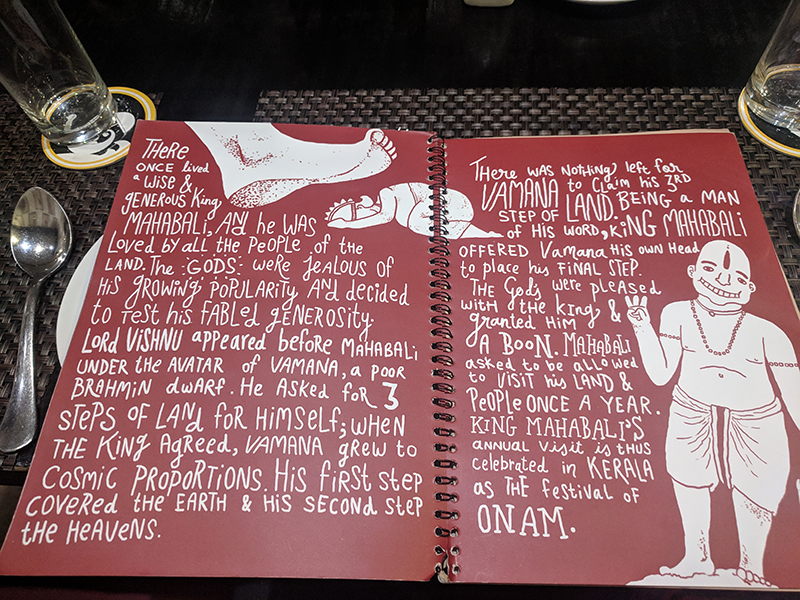 THERE
ONCE lived
a WISE &
GENEROUS King
MAHABALI, AND he WAS
Loved by all the PEOPLE of the
LAND. The GODS were JEALOUS of
HIS GROWING POPULARITY AND decided
to TEST his FABLEd GENEROSITY.
LORD VISHNU appeared before MAHABALi
UNDER the AVATAR of VAMANA, a POOR
BRAHMIN dwarf. He ASKED for 3
STEPS OF LANd foR HIMSElf; WHEN
THE KING AGREED, VAMANA gREW to
COSMIC PROPORTIONS. His first step
COVERED the EARTH & HIS SECOND STEP
the HEAVENS.
THERE WAS NOTHING left for
VAMANA to CLAIM his 3RD
STEP OF LAND. BEING a MAN
of HIS WORD, KING MAHABALI
OFFERED Vamana HIS OWN HEAD
to place his FINAL STEP.
THE Gods were PLEASED
with the king &
granted HIM
A BOON. MAHABALI
asked to be allowed
to VISIT his LAND &
PEOPLE ONCE A YEAR.
KING MAHABALI'S
annual visit is thus
celebrated in KERALA
as THE festival of
ONAM.